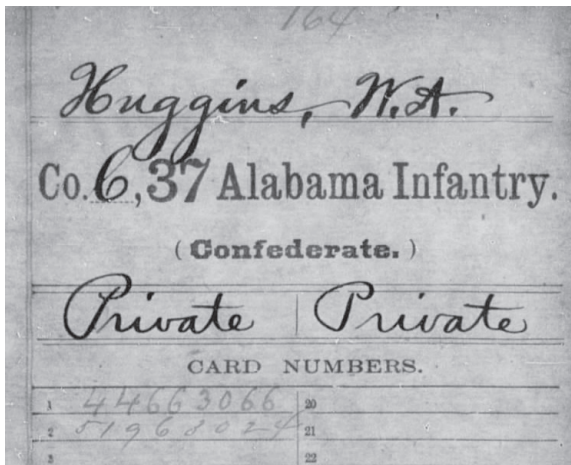 164
Huggins, W.A.
Co. C, 37 Alabama Infantry.
(Confederate.)
Private | Private
CARD NUMBERS.
1 44663066 20
2 51968024 21
3 22